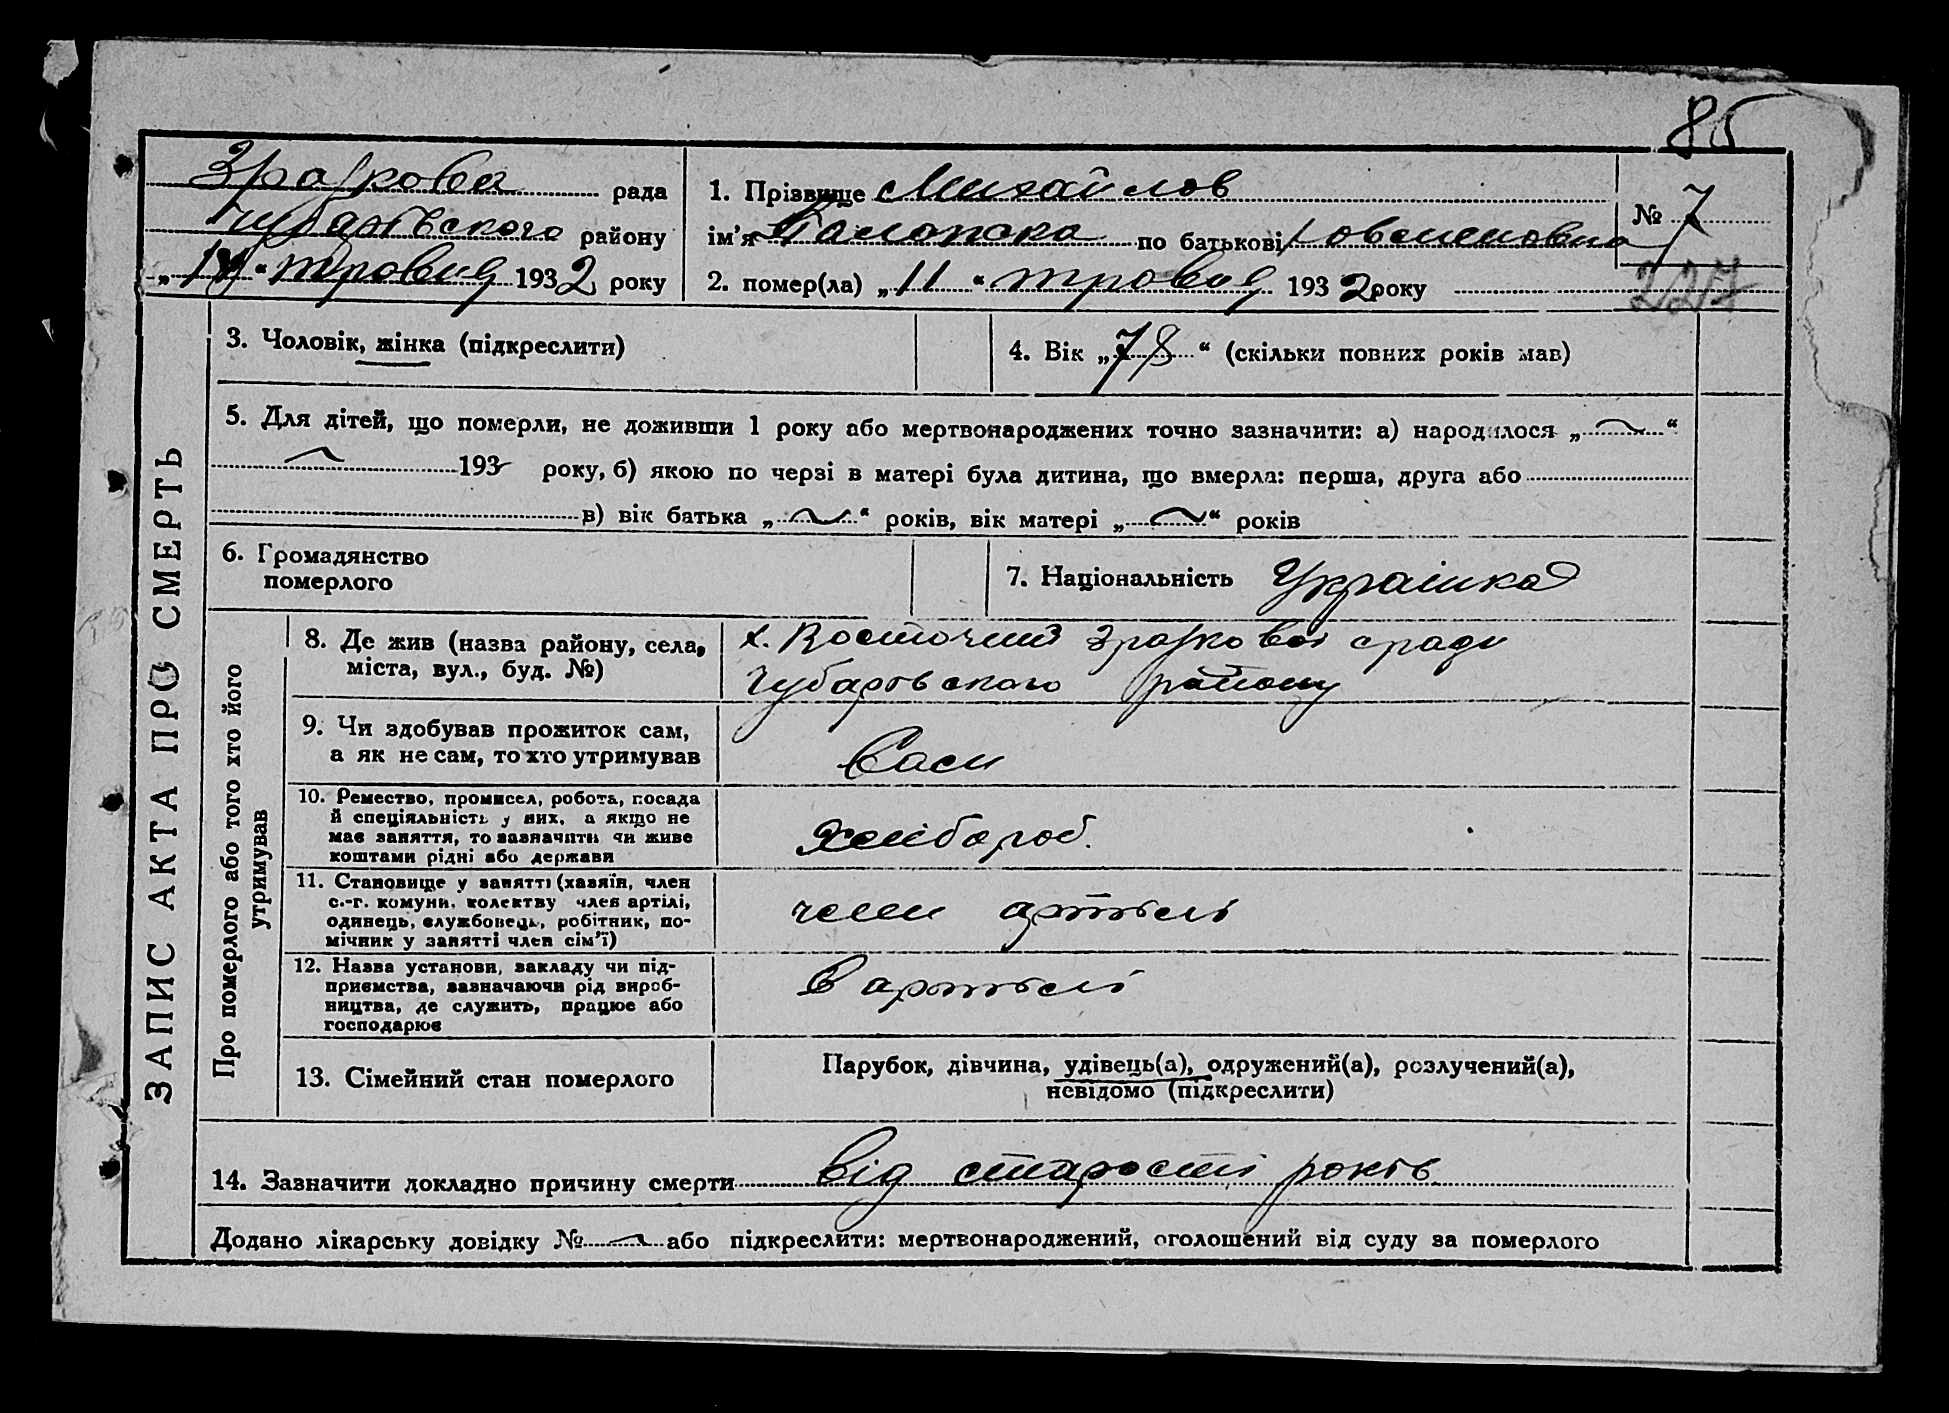 85
рада
Чубарівського району
" травня 1932 року
1. Прізвище Михайлов
ім'я по батькові
№ 7
2. помер(ла) „11“ травня 1932 року
227
ЗАПИС АКТА ПРО СМЕРТЬ
3. Чоловік, жінка (підкреслити)
4. Вік „78“ (скільки повних років мав)
5. Для дітей, що померли, не доживши 1 року або мертвонароджених точно зазначити: а) народилося „ “
193 року, б) якою по черзі в матері була дитина, що вмерла: перша, друга або
в) вік батька „ “ років, вік матері „ “ років
6. Громадянство
померлого
7. Національність Українка
Про померлого або того хто його
утримував
8. Де жив (назва району, села,
міста, вул., буд. №)
х. Восточний сради
Чубарівского району
9. Чи здобував прожиток сам,
а як не сам, то хто утримував
Сами
10. Ремество, промисел, робота, посада
й спеціяльність у них, а якщо не
має заняття, то зазначити чи живе
коштами рідні або держави
Хлібороб.
11. Становище у занятті (хазяїн, член
с.-г. комуни, колектву член артілі,
одинець, службовець, робітник, по-
мічник у занятті член сім'ї)
член артелі
12. Назва установи, закладу чи під-
приємства, зазначаючи рід вироб-
ництва, де служить, працює або
господарює
В артелі
13. Сімейний стан померлого
Парубок, дівчина, удівець(а), одружений(а), розлучений(а),
невідомо (підкреслити)
14. Зазначити докладно причину смерти від старости років
Додано лікарську довідку № або підкреслити: мертвонароджений, оголошений від суду за померлого